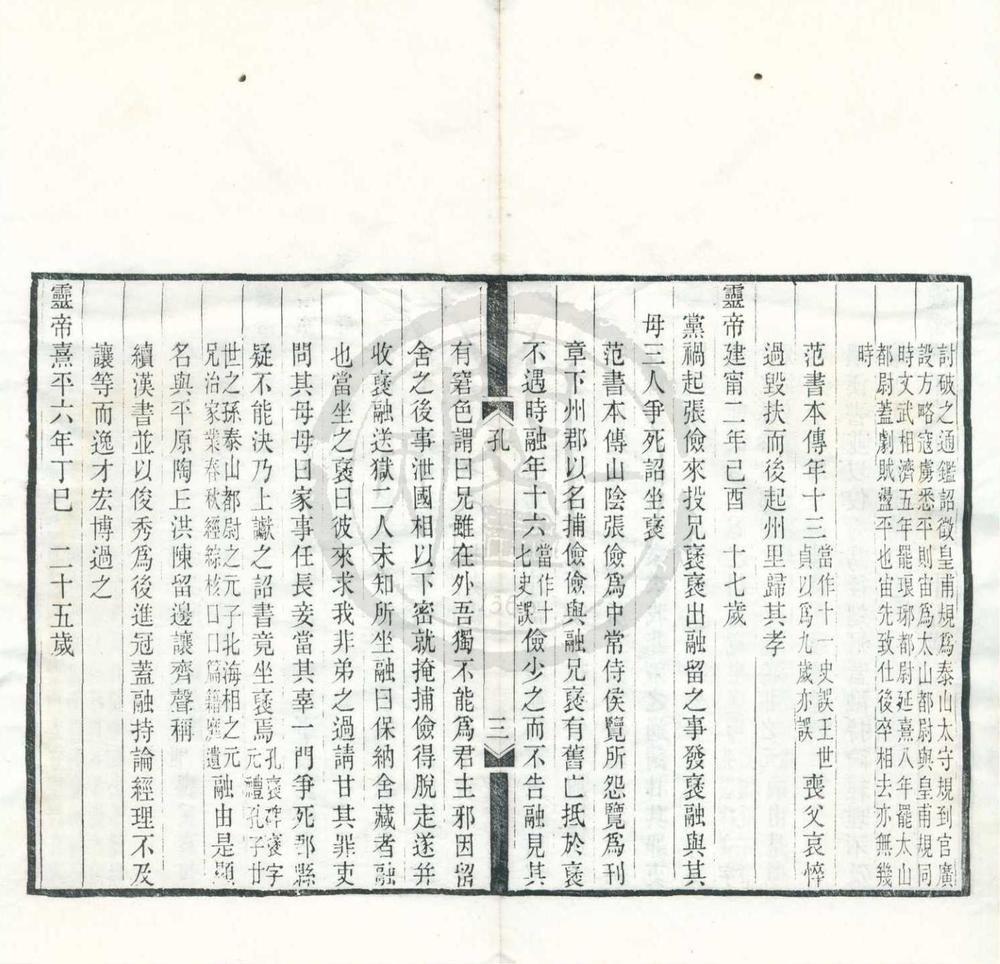 討破之通鑑詔徵皇甫規爲泰山太守規到官廣
設方略寇虜悉平則宙爲太山都尉與皇甫規同
時文武相濟五年罷琅邪都尉延熹八年罷太山
都尉蓋劇賊盪平也宙先致仕後卒相去亦無幾
時
范書本傳年十三當作十一史誤王世貞以爲九歲亦誤喪父哀悴
過毀扶而後起州里歸其孝
靈帝建甯二年己酉　十七歲
黨禍起張儉來投兄襃襃出融留之事發襃融與其
母三人爭死詔坐襃
范書本傳山陰張儉爲中常侍侯覽所怨覽爲刊
章下州郡以名捕儉儉與融兄襃有舊亡抵於襃
不遇時融年十六當作十七史誤儉少之而不告融見其
孔　三
有窘色謂曰兄雖在外吾獨不能爲君主邪因留
舍之後事泄國相以下密就掩捕儉得脫走遂并
收襃融送獄二人未知所坐融曰保納舍藏者融
也當坐之襃曰彼來求我非弟之過請甘其罪吏
問其母母曰家事任長妾當其辜一門爭死郡縣
疑不能決乃上讞之詔書竟坐襃焉孔襃碑襃字元禮孔子廿
世之孫泰山都尉之元子北海相之元兄治家業春秋經綜核口口篇籍靡遺融由是顯
名與平原陶丘洪陳留邊讓齊聲稱
續漢書並以俊秀爲後進冠蓋融持論經理不及
讓等而逸才宏博過之
靈帝熹平六年丁巳　二十五歲